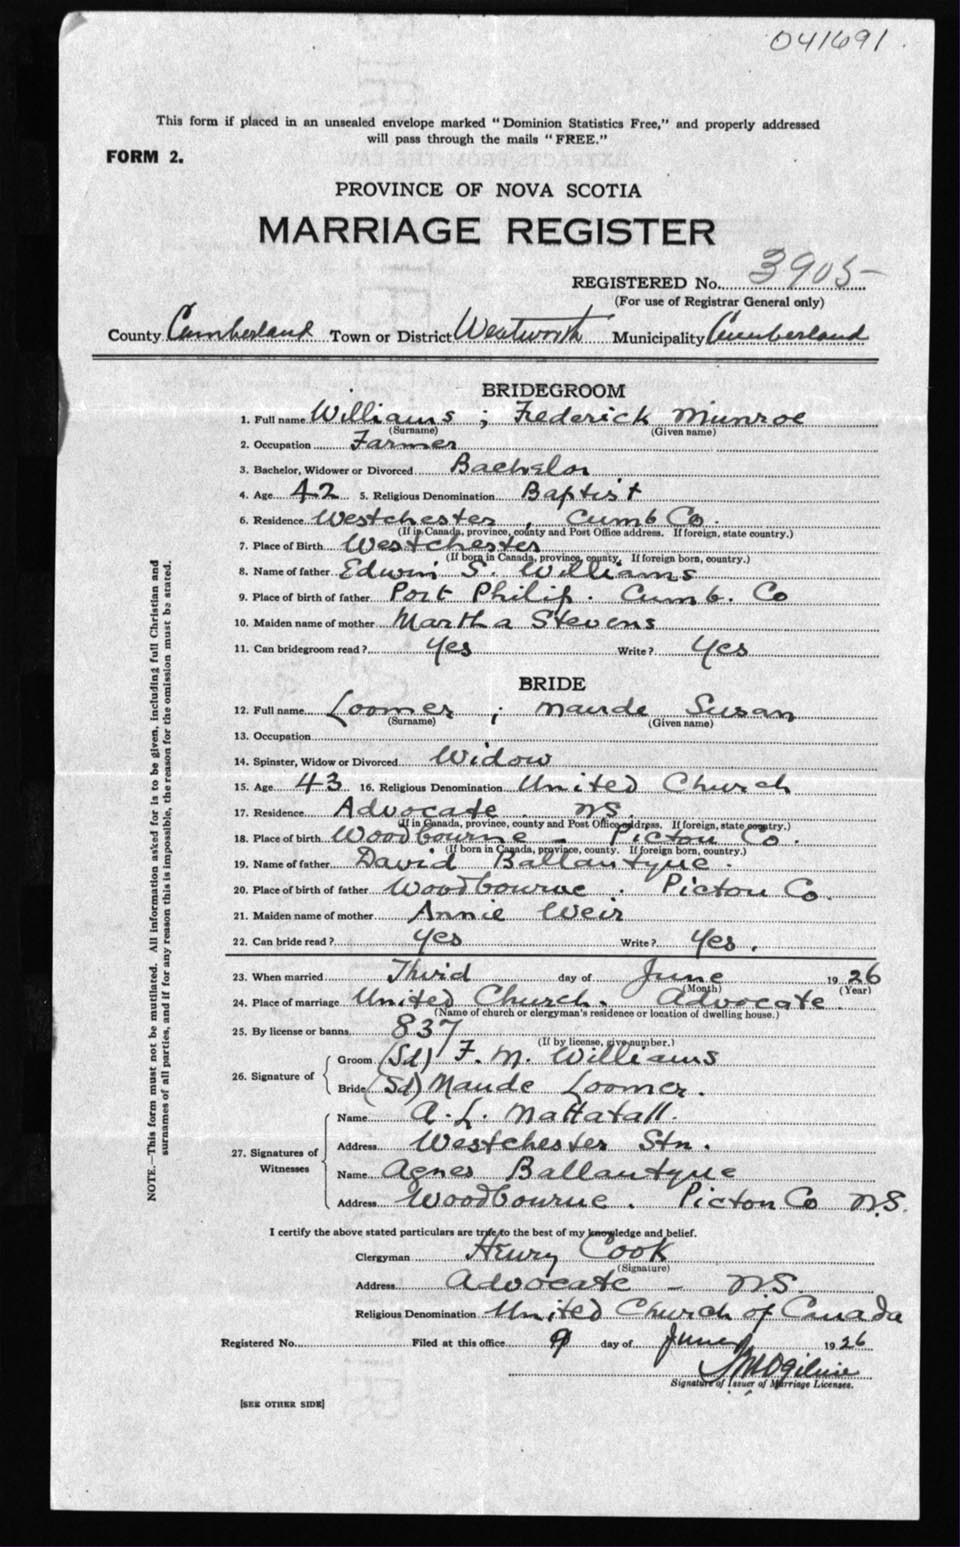 041691
This form if placed in an unsealed envelope marked "Dominion Statistics Free," and properly addressed
will pass through the mails "FREE."
FORM 2.
PROVINCE OF NOVA SCOTIA
MARRIAGE REGISTER
REGISTERED No. 3905
(For use of Registrar General only)
County Cumberland Town or District Wentworth Municipality Cumberland
BRIDEGROOM
1. Full name Williams ; Frederick Munroe
(Surname) (Given name)
2. Occupation Farmer
3. Bachelor, Widower or Divorced Bachelor
4. Age 42 5. Religious Denomination Baptist
6. Residence Westchester, Cumb Co.
(If in Canada, province, county and Post Office address. If foreign, state country.)
7. Place of Birth Westchester
(If born in Canada, province, county. If foreign born, country.)
8. Name of father Edwin S. Williams
9. Place of birth of father Port Philip. Cumb. Co
10. Maiden name of mother Martha Stevens
11. Can bridegroom read? Yes Write? Yes
BRIDE
12. Full name Loomer ; Maude Susan
(Surname) (Given name)
13. Occupation
14. Spinster, Widow or Divorced Widow
15. Age 43 16. Religious Denomination United Church
17. Residence Advocate NS.
(If in Canada, province, county and Post Office address. If foreign, state country.)
18. Place of birth Woodbourne - Picton Co.
(If born in Canada, province, county. If foreign born, country.)
19. Name of father David Ballantyne.
20. Place of birth of father Woodbourne. Picton Co.
21. Maiden name of mother Annie Weir
22. Can bride read? Yes Write? Yes.
23. When married Third day of June 1926
(Month) (Year)
24. Place of marriage United Church. Advocate.
(Name of church or clergyman's residence or location of dwelling house.)
25. By license or banns 837
(If by license, give number.)
26. Signature of Groom (Sd) F. M. Williams
Bride (Sd) Maude Loomer.
27. Signatures of Witnesses
Name A. L. Mattatall.
Address Westchester Stn.
Name Agnes Ballantyne
Address Woodbourne. Picton Co N.S.
I certify the above stated particulars are true to the best of my knowledge and belief.
Clergyman Henry Cook
(Signature)
Address Advocate - N.S.
Religious Denomination United Church of Canada
Registered No. Filed at this office 9 day of June 1926
Ogilvie
Signature of Issuer of Marriage Licenses.
[SEE OTHER SIDE]
NOTE.—This form must not be mutilated. All information asked for is to be given, including full Christian and
surnames of all parties, and if for any reason this is impossible, the reason for the omission must be stated.